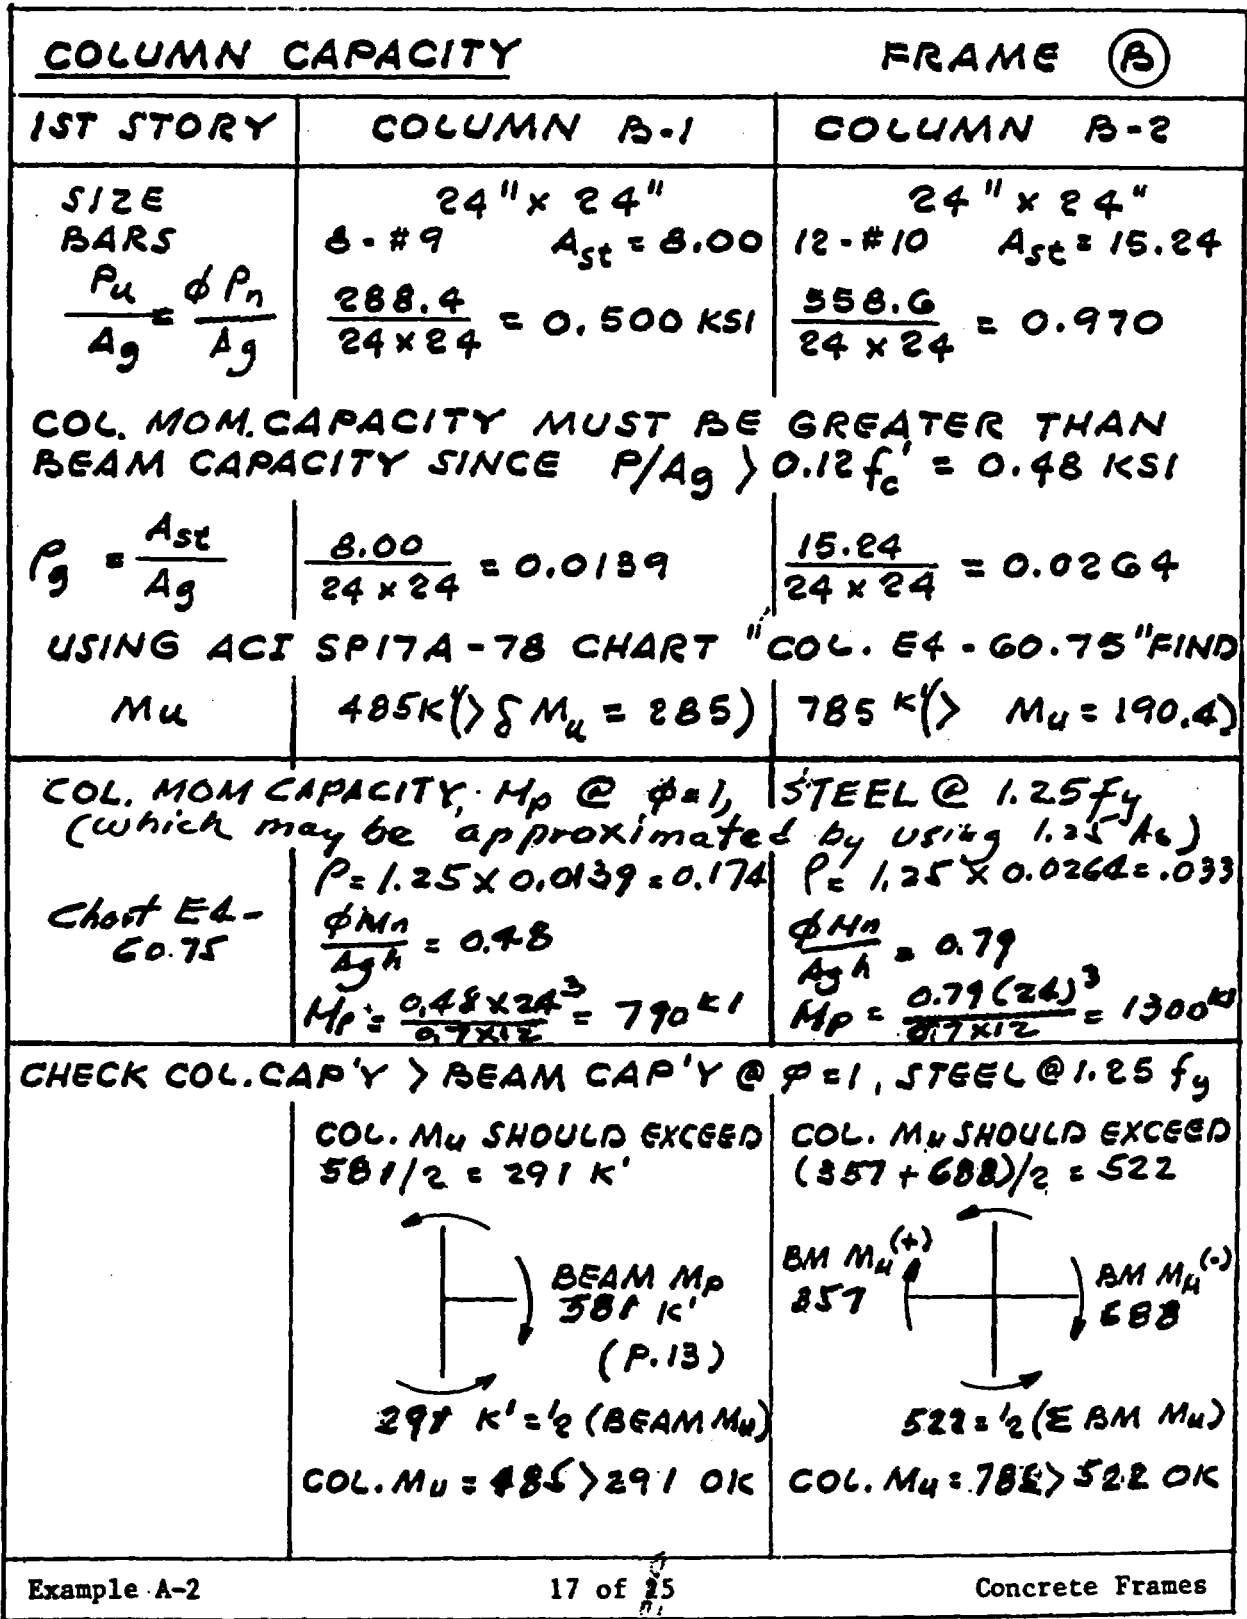 COLUMN CAPACITY FRAME B
1ST STORY COLUMN B-1 COLUMN B-2
SIZE 24" x 24" 24" x 24"
BARS 8-#9 Ast = 8.00 12-#10 Ast = 15.24
Pu/Ag = φPn/Ag 288.4/24 x 24 = 0.500 KSI 558.6/24 x 24 = 0.970
COL. MOM. CAPACITY MUST BE GREATER THAN
BEAM CAPACITY SINCE P/Ag > 0.12 fc' = 0.48 KSI
ρg = Ast/Ag 8.00/24 x 24 = 0.0139 15.24/24 x 24 = 0.0264
USING ACI SP17A-78 CHART "COL. E4-60.75" FIND
Mu 485K'(> δMu = 285) 785 K'(> Mu = 190.4)
COL. MOM CAPACITY, Mp @ φ=1, STEEL @ 1.25fy
(which may be approximated by using 1.25 As)
ρ = 1.25 x 0.0139 = 0.174 ρ = 1.25 x 0.0264 = .033
Chart E4-60.75 φMn/Agh = 0.48 φMn/Agh = 0.79
Mp = 0.48 x 24³/0.7x12 = 790 K' Mp = 0.79 (24)³/0.7x12 = 1300 K'
CHECK COL. CAP'Y > BEAM CAP'Y @ φ=1, STEEL @ 1.25 fy
COL. Mu SHOULD EXCEED COL. Mu SHOULD EXCEED
581/2 = 291 K' (357 + 688)/2 = 522
BEAM Mp BM Mu(+) BM Mu(-)
581 K' 357 688
(P.13)
291 K' = ½ (BEAM Mu) 522 = ½ (Σ BM Mu)
COL. Mu = 485 > 291 OK COL. Mu = 785 > 522 OK
Example A-2 17 of 25 Concrete Frames